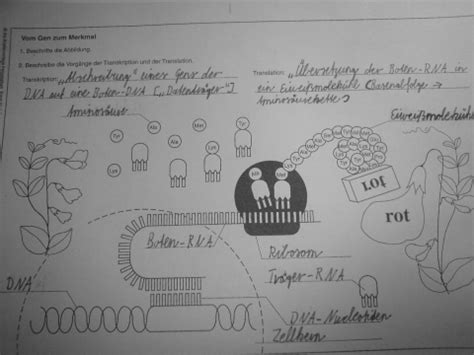 Vom Gen zum Merkmal
1. Beschrifte die Abbildung.
2. Beschreibe die Vorgänge der Transkription und der Translation.
Transkription: „Abschreibung" eines Gens der
DNA auf eine Boten-DNA [„Datenträger"]
Translation: „Übersetzung der Boten-RNA in
ein Eiweißmolekühl
Aminosäurekette)
Aminosäure
Eiweißmolekühl
Tyr
Ala
Ala
Met
Tyr
Leu
Tyr
Ala
Met
rot
rot
Boten-RNA
Ribosom
Träger-RNA
DNA
DNA-Nucleotiden
Zellkern